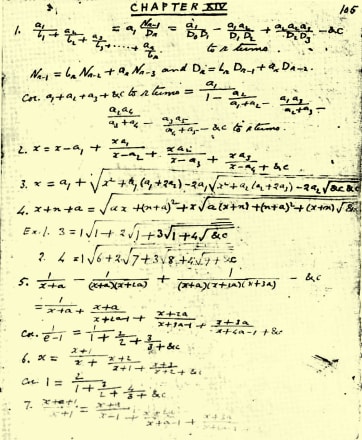 CHAPTER XIV 105
1. a₁/b₁ + a₂/b₂ + a₃/b₃ + .... + aₙ/bₙ = a₁ Nₙ₋₁/Dₙ = a₁/D₀D₁ - a₁a₂/D₁D₂ + a₁a₂a₃/D₂D₃ - &c
to n terms
Nₙ₋₁ = bₙ Nₙ₋₂ + aₙ Nₙ₋₃ and Dₙ = bₙ Dₙ₋₁ + aₙ Dₙ₋₂
Cor. a₁ + a₂ + a₃ + &c to n terms = a₁/1 - a₂/a₁+a₂ - a₁a₃/a₂+a₃ -
a₂a₄/a₃+a₄ - a₃a₅/a₄+a₅ - &c to n terms.
2. x = x - a₁ + xa₁/x-a₂ + xa₂/x-a₃ + xa₃/x-a₄ + &c
3. x = a₁ + √x² + a₁(a₁+2a₂) - 2a₁√x² + a₂(a₂+2a₃) - 2a₂√&c &c
4. x+n+a = √ax + (n+a)² + x√a(x+n) + (n+a)² + (x+n)√&c
Ex. 1. 3 = √1 + 2√1 + 3√1 + 4√&c
2. 4 = √6 + 2√7 + 3√8 + 4√9 + &c
5. 1/x+a - 1/(x+a)(x+2a) + 1/(x+a)(x+2a)(x+3a) - &c
= 1/x+a + x+a/x+2a-1 + x+2a/x+3a-1 + x+3a/x+4a-1 + &c
Cor. 1/e-1 = 1/1 + 2/2 + 3/3 + &c
6. x = x+1/x + x+2/x+1 + x+3/x+2 + &c
Cor 1 = 2/1 + 3/2 + 4/3 + &c
7.